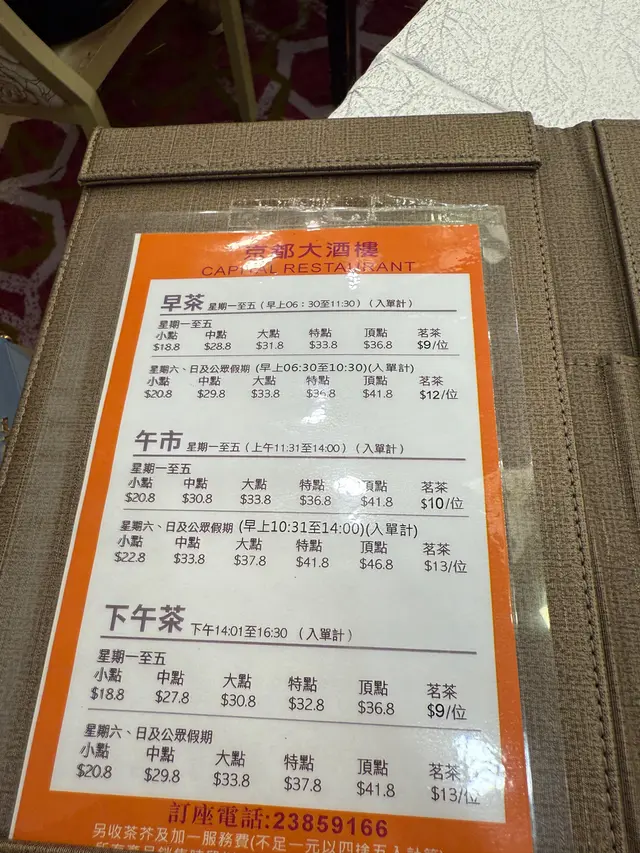 京都大酒樓
CAPITAL RESTAURANT
早茶 星期一至五（早上06：30至11:30）（入單計）
星期一至五
小點 中點 大點 特點 頂點 茗茶
$18.8 $28.8 $31.8 $33.8 $36.8 $9/位
星期六、日及公眾假期 (早上06:30至10:30)(入單計)
小點 中點 大點 特點 頂點 茗茶
$20.8 $29.8 $33.8 $36.8 $41.8 $12/位
午市 星期一至五（上午11:31至14:00）（入單計）
星期一至五
小點 中點 大點 特點 頂點 茗茶
$20.8 $30.8 $33.8 $36.8 $41.8 $10/位
星期六、日及公眾假期 (早上10:31至14:00)(入單計)
小點 中點 大點 特點 頂點 茗茶
$22.8 $33.8 $37.8 $41.8 $46.8 $13/位
下午茶 下午14:01至16:30 （入單計）
星期一至五
小點 中點 大點 特點 頂點 茗茶
$18.8 $27.8 $30.8 $32.8 $36.8 $9/位
星期六、日及公眾假期
小點 中點 大點 特點 頂點 茗茶
$20.8 $29.8 $33.8 $37.8 $41.8 $13/位
訂座電話:23859166
另收茶芥及加一服務費(不足一元以四捨五入計算)